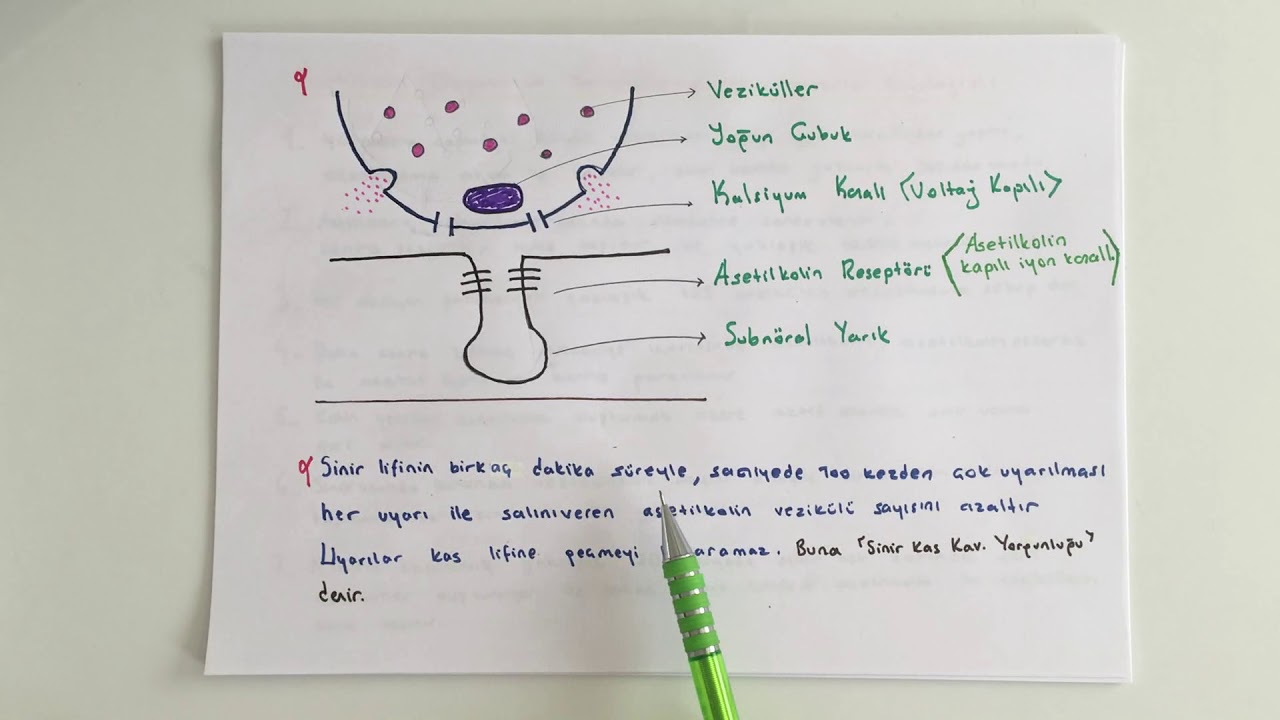 Veziküller
Yoğun Çubuk
Kalsiyum Kanalı (Voltaj Kapılı)
Asetilkolin Reseptörü (Asetilkolin
kapılı iyon kanalı)
Subnöral Yarık
Sinir lifinin birkaç dakika süreyle, saniyede 100 kezden çok uyarılması
her uyarı ile salınıveren asetilkolin vezikülü sayısını azaltır
Uyarılar kas lifine geçmeyi. Buna "Sinir Kas Kav. Yorgunluğu"
denir.